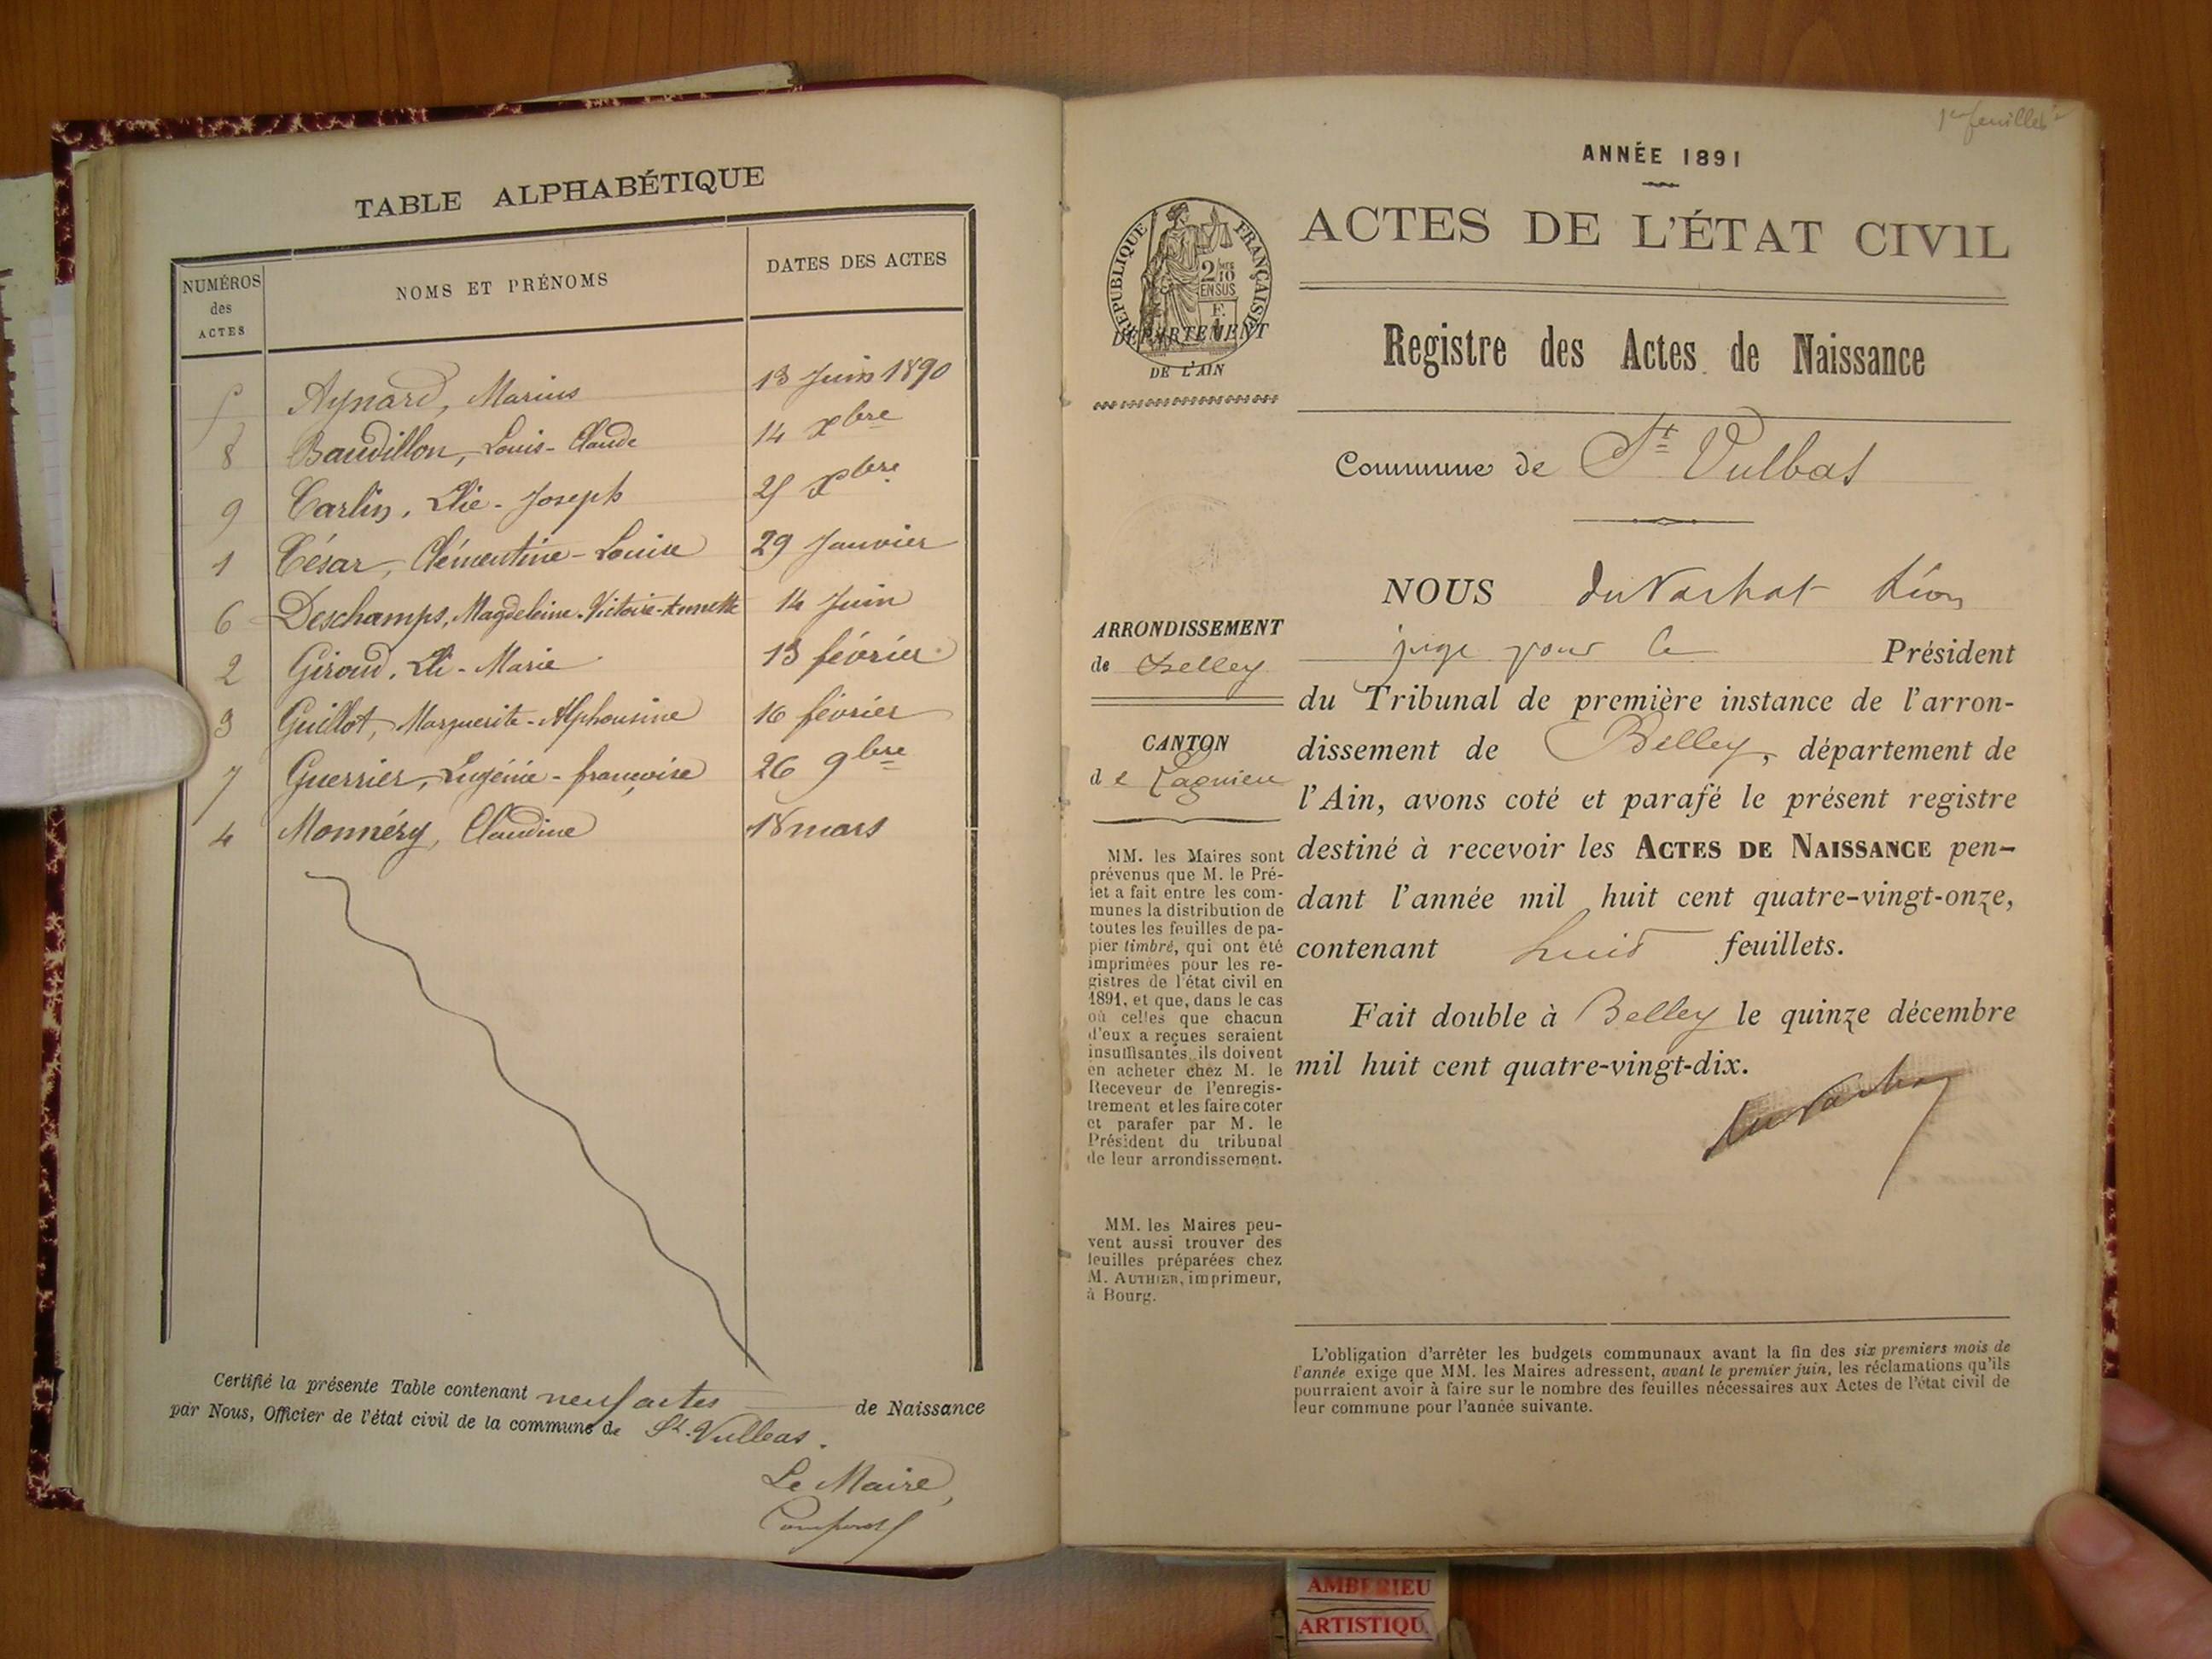 TABLE ALPHABÉTIQUE
NUMÉROS des ACTES
NOMS ET PRÉNOMS
DATES DES ACTES
5 Aynard, Marius 13 Juin 1890
8 Baudillon, Louis-Claude 14 Xbre
9 Carlin, Elie-Joseph 25 Xbre
1 César, Clémentine-Louise 29 Janvier
6 Deschamps, Magdeleine-Victoire-Annette 14 Juin
2 Giroud, Eli-Marie 13 février
3 Guillot, Marguerite-Alphonsine 16 février
7 Guerrier, Eugénie-françoise 26 9bre
4 Monnéry, Claudine 18 mars
Certifié la présente Table contenant neuf actes de Naissance
par Nous, Officier de l'état civil de la commune de St. Vulbas.
Le Maire,
1er feuillet
ANNÉE 1891
ACTES DE L'ÉTAT CIVIL
RÉPUBLIQUE FRANÇAISE
2/10
EN SUS
DÉPARTEMENT
DE L'AIN
Registre des Actes de Naissance
Commune de St Vulbas
ARRONDISSEMENT
de Belley
CANTON
de Lagnieu
MM. les Maires sont
prévenus que M. le Pré-
fet a fait entre les com-
munes la distribution de
toutes les feuilles de pa-
pier timbré, qui ont été
imprimées pour les re-
gistres de l'état civil en
1891, et que, dans le cas
où celles que chacun
d'eux a reçues seraient
insuffisantes, ils doivent
en acheter chez M. le
Receveur de l'enregis-
trement et les faire coter
et parafer par M. le
Président du tribunal
de leur arrondissement.
MM. les Maires peu-
vent aussi trouver des
feuilles préparées chez
M. AUTHIER, imprimeur,
à Bourg.
NOUS Léon
juge pour le Président
du Tribunal de première instance de l'arron-
dissement de Belley, département de
l'Ain, avons coté et parafé le présent registre
destiné à recevoir les ACTES DE NAISSANCE pen-
dant l'année mil huit cent quatre-vingt-onze,
contenant huit feuillets.
Fait double à Belley le quinze décembre
mil huit cent quatre-vingt-dix.
L'obligation d'arrêter les budgets communaux avant la fin des six premiers mois de
l'année exige que MM. les Maires adressent, avant le premier juin, les réclamations qu'ils
pourraient avoir à faire sur le nombre des feuilles nécessaires aux Actes de l'état civil de
leur commune pour l'année suivante.
AMBERIEU
ARTISTIQU